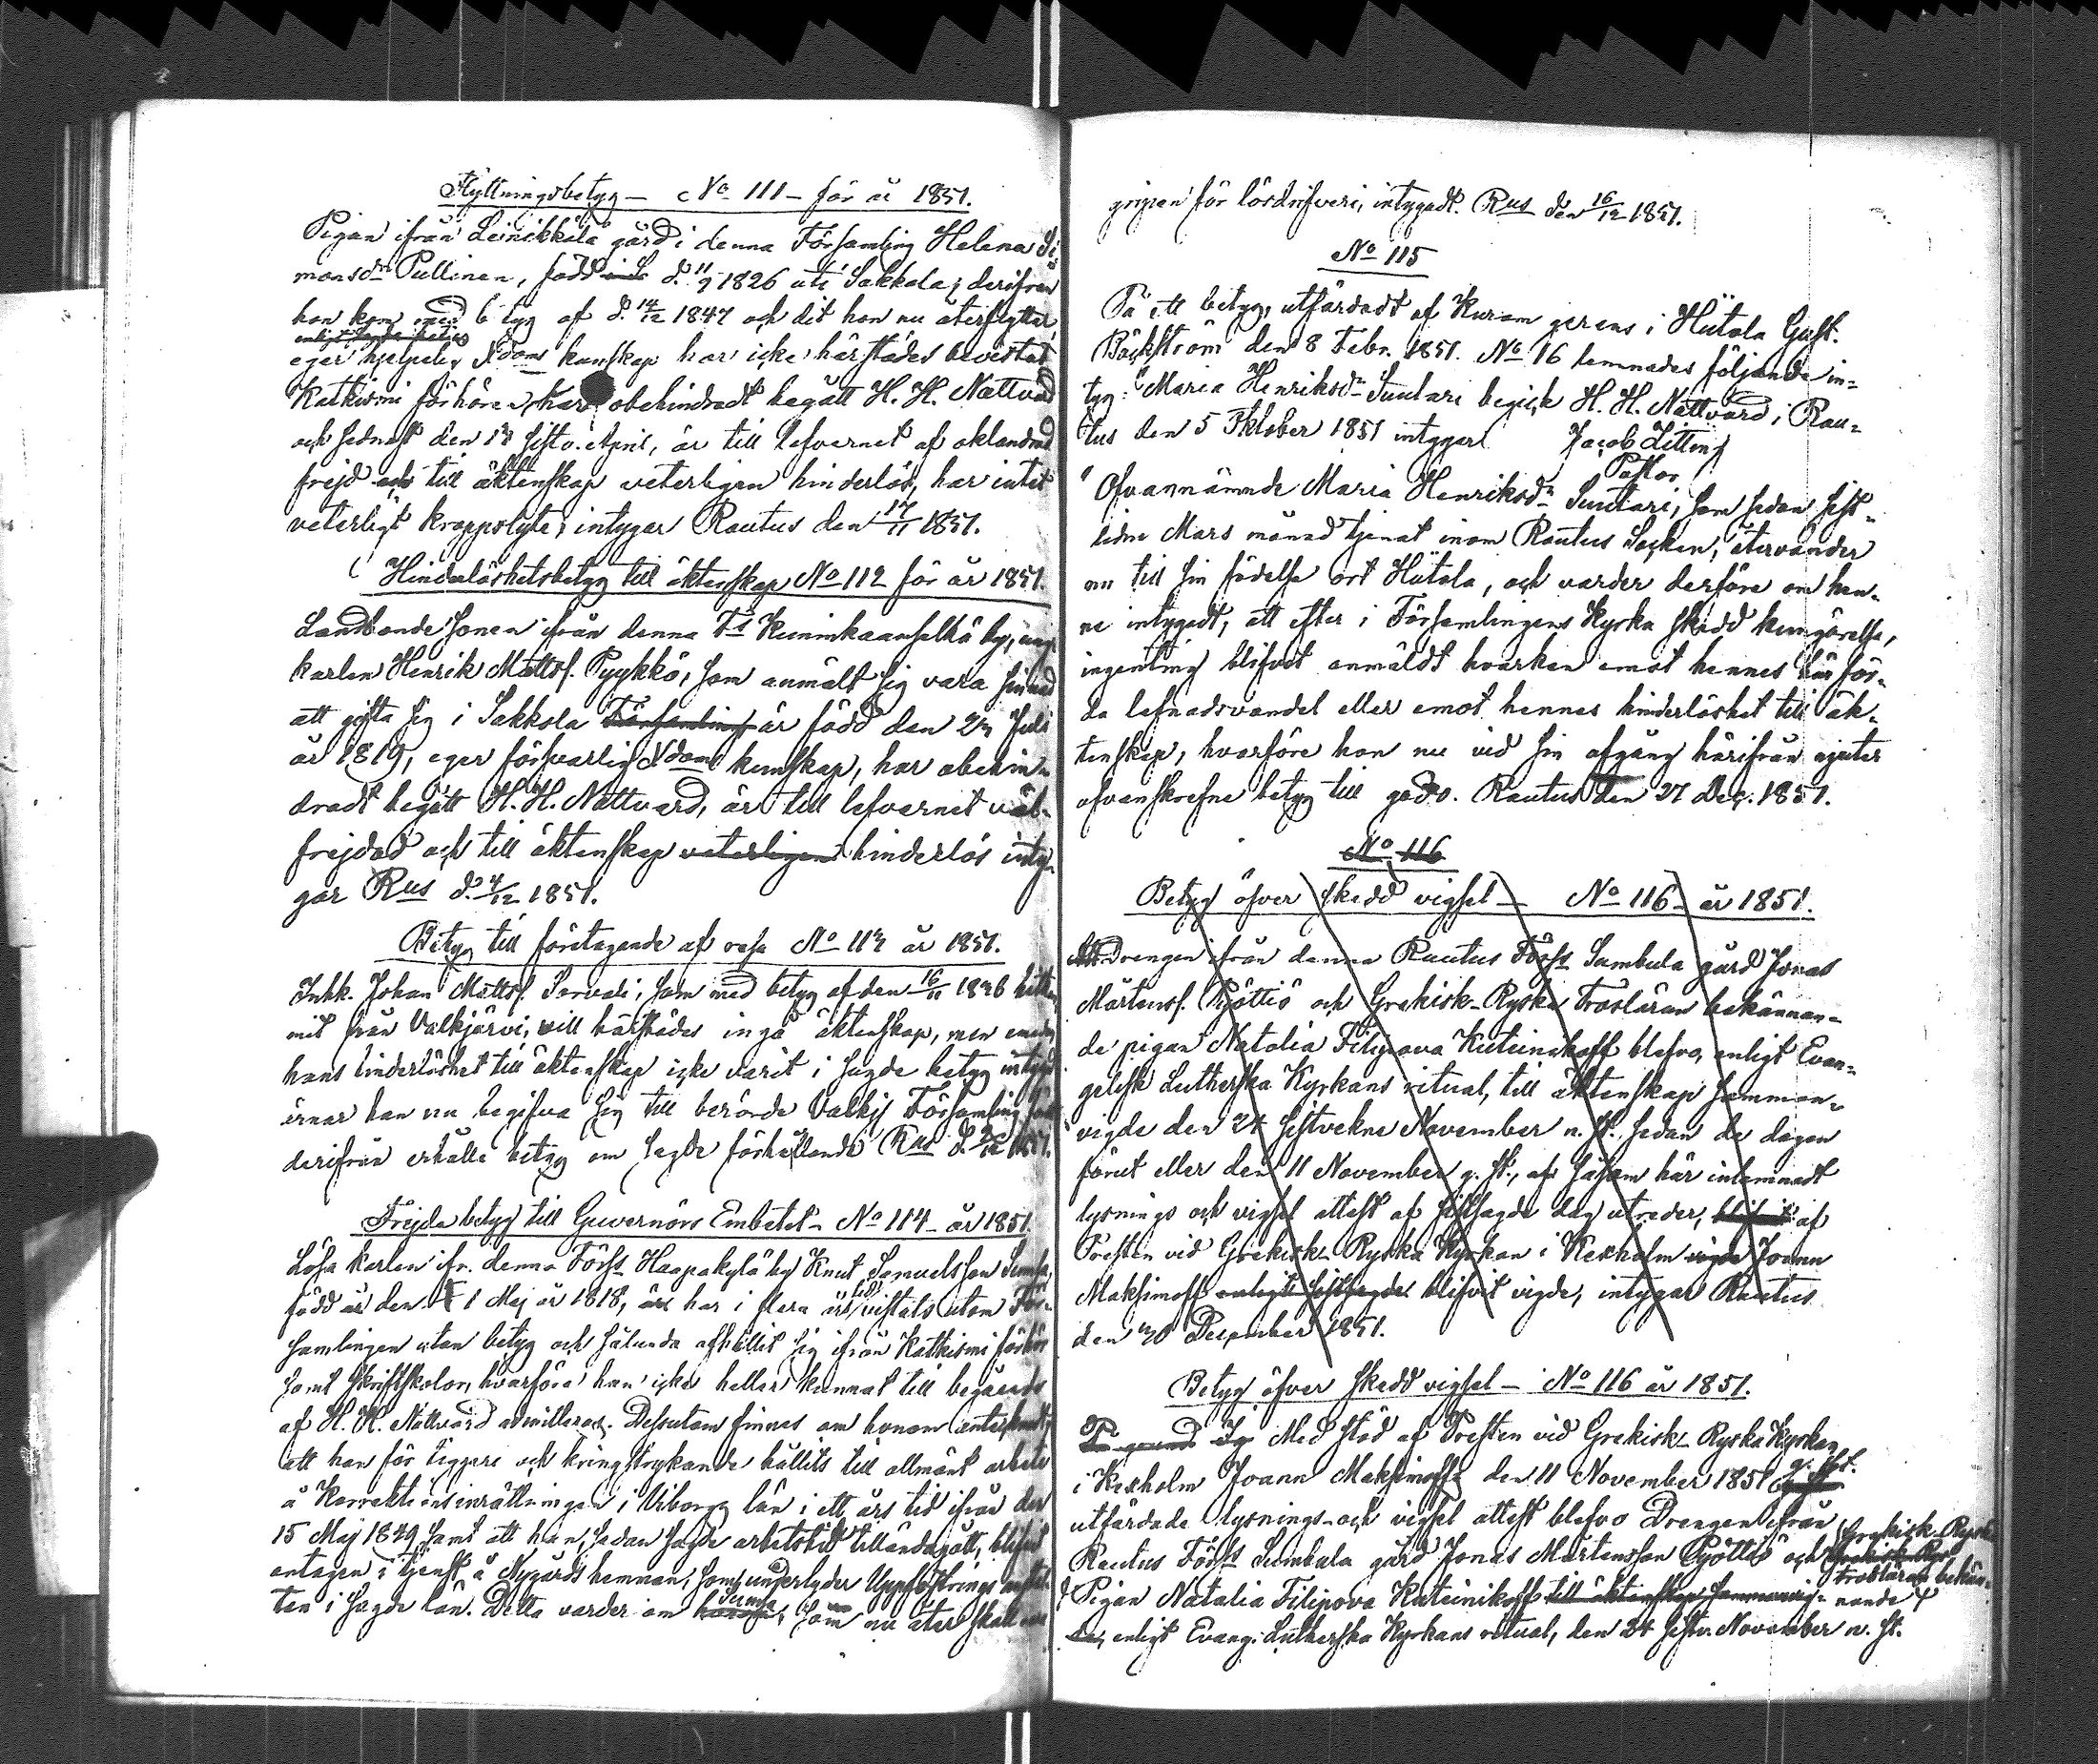 Flyttningsbetyg — No 111 — för år 1851.
Pigan ifrån Leinikkälä gård i denna Församling Helena Si=
monsdr Pullinen, född d. 11/9 1826 uti Sakkola, derifrån
hon kom med betyg af d. 14/12 1847 och dit hon nu återflyttar,
eger hjelpelig Xdoms kunskap har icke härstädes bevistat
Katkismi förhören, har obehindradt begått H. H. Nattvard
och sednast den sistv. April, är till lefvernet af oklandrad
frejd och till äktenskap veterligen hinderlös, har intet
veterligt kroppslyte; intygar Rautus den 17/11 1851.
Hinderlöshetsbetyg till äktenskap No 112 för år 1851.
Landbonde sonen ifrån denna Fs Kuninkaanselkä by, ung
karlen Henrik Mattss. Pyykkö, som anmält sig vara sinnad
att gifta sig i Sakkola Församling är född den 23 Juli
år 1819, eger försvarlig Xdoms kunskap, har obehin=
dradt begått H. H. Nattvard, är till lefvernet väl=
frejdad och till äktenskap veterligen hinderlös inty=
gar Rus d. 4/12 1851.
Betyg till företagande af resa No 113 år 1851.
Inhk. Johan Mattss. Sarvali, som med betyg af den 16/11 1846 hitkom=
mit från Valkjärvi, vill härstädes ingå äktenskap, men emedan
hans hinderlöshet till äktenskap icke varit i sagde betyg intygad
ärnar han nu begifva sig till berörde Valkj. Församling för att
derifrån erhålla betyg om sagde förhållande Rus d. /12 1851.
Frejdebetyg till Guvernörs Embetet — No 114 — år 1851.
Lösa karlen ifr. denna Förss Haapakylä by Knut Samuelsson Sumsa,
född är den 1 Maj år 1818, har i flera års tid vistats utom För=
samlingen utan betyg och sålunda afhållit sig ifrån Katkismi förhör
samt skriftskolor, hvarföre han icke heller kunnat till begående
af H. H. Nattvard admitteras. Dessutom finnes om honom antecknadt,
att han för tiggeri och kringstrykande hållits till allmänt arbete
å Korrektionsinrättningen i Viborgs län i ett års tid ifrån den
15 Maj 1849, samt att han, sedan sagde arbetstid tilländagått, blifvit
antagen i tjenst å Nygårds hemman, som underlyder Uppfostrings anstal=
ten i sagde län. Detta varder om Sumsa, som nu åter skall vara
gripen för lösdrifveri, intygadt. Rus den 16/12 1851.
No 115
På ett betyg, utfärdadt af Kuram gerens i Hiitola Gust.
Bäckström den 8 Febr. 1851. No 16 lemnades följande in=
tyg: "Maria Henriksdr Suutari begick H. H. Nattvard i Rau=
tus den 5 Oktober 1851 intygar Jacob Zitting
Pastor
"Ofvannämnde Maria Henriksdr Suutari, som sedan sist=
lidne Mars månad tjenat inom Rautus Socken, återvänder
nu till sin födelse ort Hiitola, och varder derföre om hen=
ne intygadt, att efter i Församlingens Kyrka skedd kungörelse,
ingenting blifvit anmäldt hvarken emot hennes här för=
da lefnadsvandel eller emot hennes hinderlöshet till äk=
tenskap, hvarföre hon nu vid sin afgång härifrån njuter
ofvanskrefne betyg till godo. Rautus den 27 Dec. 1851.
No 116
Betyg öfver skedd vigsel — No 116 — år 1851.
Drengen ifrån denna Rautus Förss Sumbula gård Jonas
Mårtenss. Pyöttiö och Grekisk-Ryska Trosläran bekännan=
de pigan Natalia Filipova Kuteinikoff blefvo, enligt Evan=
gelisk Lutherska Kyrkans ritual, till äktenskap samman=
vigde den 24 sistvekne November n. st. sedan de dagen
förut eller den 11 November g. st., såsom här inlemnadt
lysnings och vigsel attest af sistsagde dag utreder, blifvit af
Presten vid Grekisk-Ryska Kyrkan i Kexholm vigde Joann
Maksimoff enligt sistsagde blifvit vigde, intygar Rautus
den 30 December 1851.
Betyg öfver skedd vigsel — No 116 år 1851.
På grund Med stöd af Presten vid Grekisk-Ryska Kyrkan
i Kexholm Joann Maksimoffs den 11 November 1851 g. st.
utfärdade lysnings- och vigsel attest blefvo Drengen ifrån
Rautus Förss Sumbula gård Jonas Mårtensson Pyöttiö och Grekisk-Ryska
trosläran bekän=
Pigan Natalia Filipova Kuteinikoff till äktenskap sammanvig= nande
da, enligt Evang. Lutherska Kyrkans ritual, den 24 sistv. November n. st.